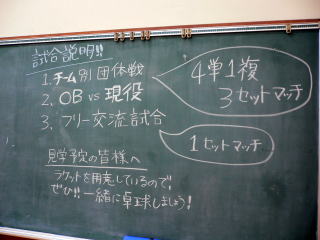 試合説明!!
1. チーム別団体戦
2. OB vs 現役
3. フリー交流試合
4単1複
3セットマッチ
1セットマッチ
見学予定の皆様へ
ラケットを用意しているので!
ぜひ!!一緒に卓球しましょう!